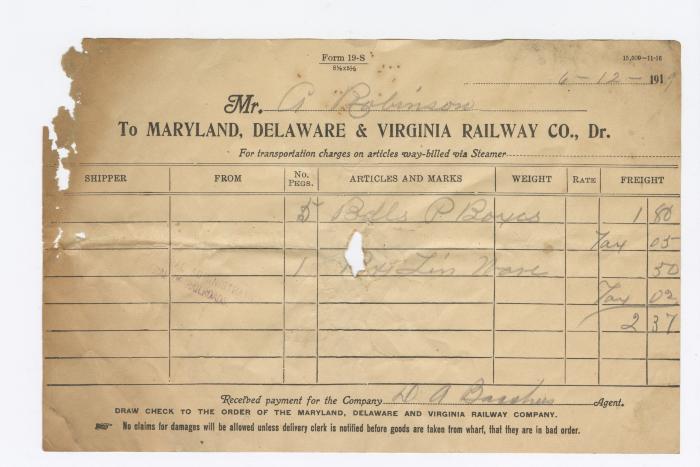 Form 19-S
8½x5½
15,000-11-16
6-12-1919
Mr. A Robinson
To MARYLAND, DELAWARE & VIRGINIA RAILWAY CO., Dr.
For transportation charges on articles way-billed via Steamer
SHIPPER FROM No. PKGS. ARTICLES AND MARKS WEIGHT RATE FREIGHT
5 Bdls P Boxes 1 80
Tax 05
1 Box Tin Ware 50
Tax 02
2 37
Received payment for the Company D A Agent.
DRAW CHECK TO THE ORDER OF THE MARYLAND, DELAWARE AND VIRGINIA RAILWAY COMPANY.
No claims for damages will be allowed unless delivery clerk is notified before goods are taken from wharf, that they are in bad order.